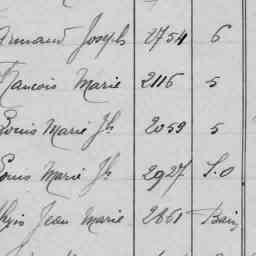 Armand Joseph 2754 6
François Marie 2116 5
Louis Marie Jh 2059 5
Louis Marie Jh 2927 S.O
Jean Marie 2661